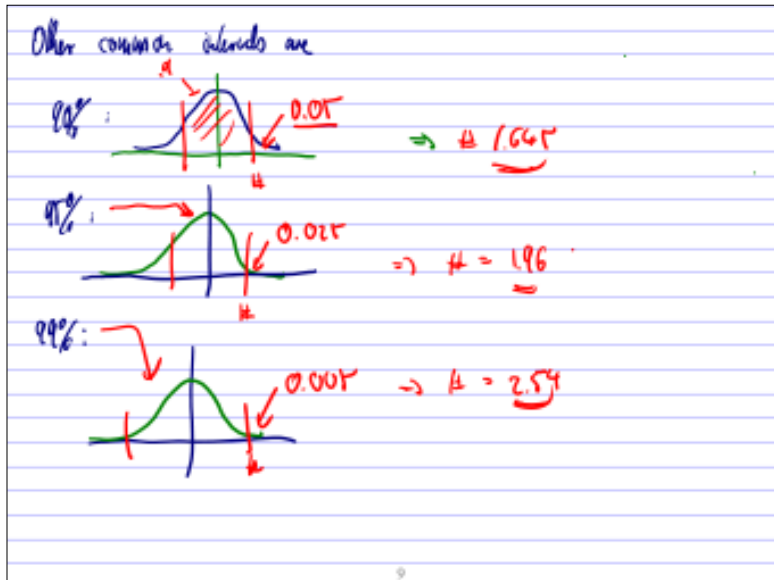 Other common intervals are
.9
90%:
0.05
# ⇒ # 1.645
95%:
0.025
# ⇒ # = 1.96
99%:
0.005 ⇒ # = 2.54
9